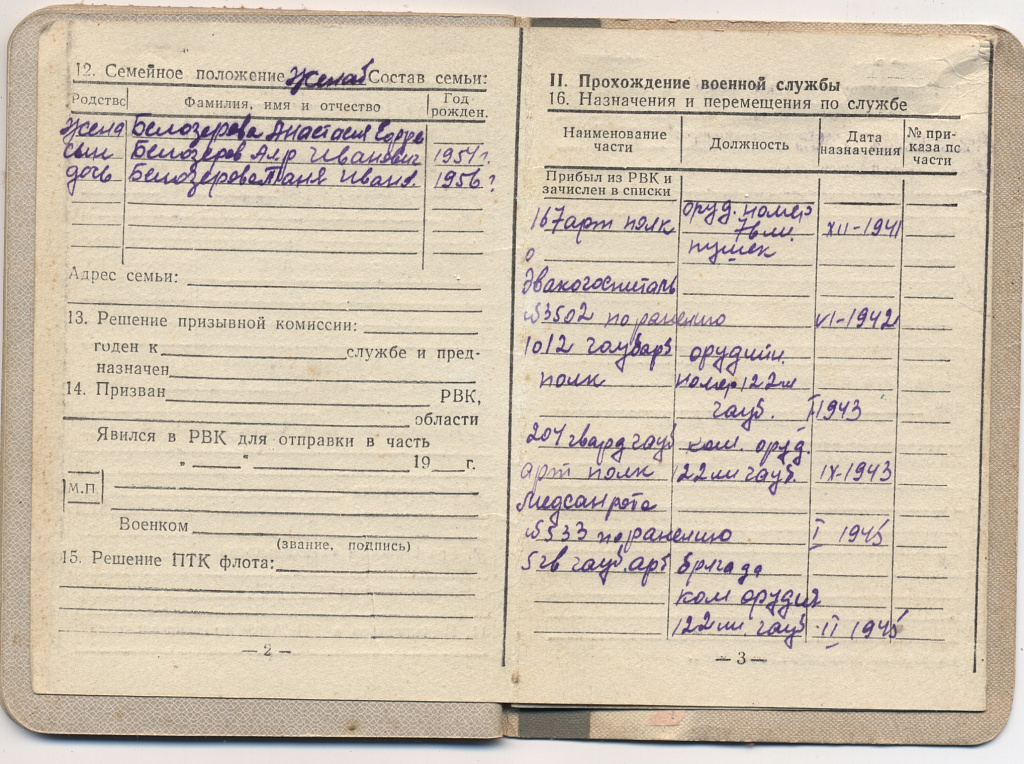 12. Семейное положение женат Состав семьи:
Родство Фамилия, имя и отчество Год рожден.
жена Белозерова Анастасия
сын Белозеров Алр Иванович 1951 г.
дочь Белозерова Таня Иван. 1956 г
Адрес семьи:
13. Решение призывной комиссии:
годен к службе и пред-
назначен
14. Призван РВК,
области
Явился в РВК для отправки в часть
„ “ 19 г.
М.П.
Военком
(звание, подпись)
15. Решение ПТК флота:
— 2 —
II. Прохождение военной службы
16. Назначения и перемещения по службе
Наименование части Должность Дата назначения № при-каза по части
Прибыл из РВК и
зачислен в списки
167 арт полк оруд. номер
76 мм. XII-1941
пушек
Эвакогоспиталь
№3502 по ранению VI-1942
1012 гаубарт орудийн.
полк номер 122 мм
гауб. II 1943
201 гвард гауб ком. оруд.
арт полк 122 мм гауб. IX-1943
Медсанрота
№533 по ранению I 1945
5 гв гауб. арт бригада
ком орудия
122 мм. гауб II 1945
— 3 —